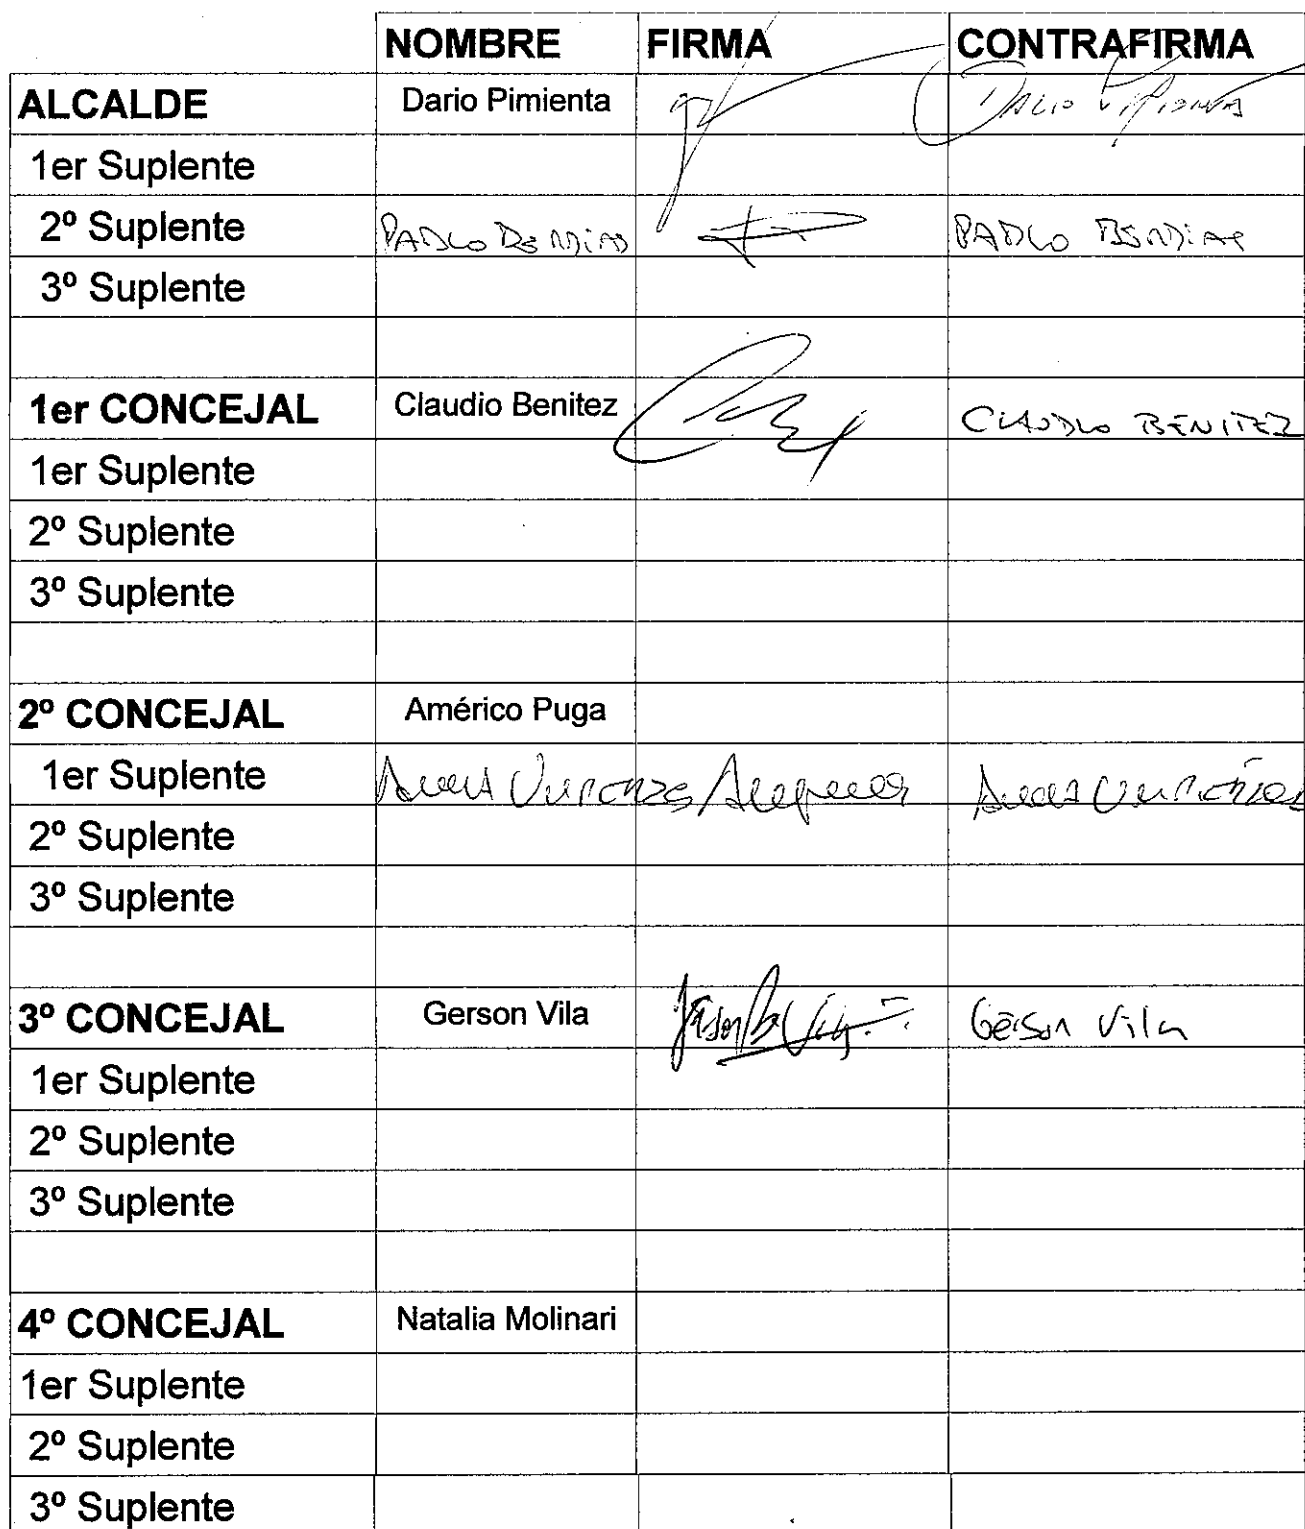 NOMBRE FIRMA CONTRAFIRMA
ALCALDE Dario Pimienta
1er Suplente
2º Suplente PABLO PABLO
3º Suplente
1er CONCEJAL Claudio Benitez CLAUDIO BENITEZ
1er Suplente
2º Suplente
3º Suplente
2º CONCEJAL Américo Puga
1er Suplente
2º Suplente
3º Suplente
3º CONCEJAL Gerson Vila Gerson Vila
1er Suplente
2º Suplente
3º Suplente
4º CONCEJAL Natalia Molinari
1er Suplente
2º Suplente
3º Suplente